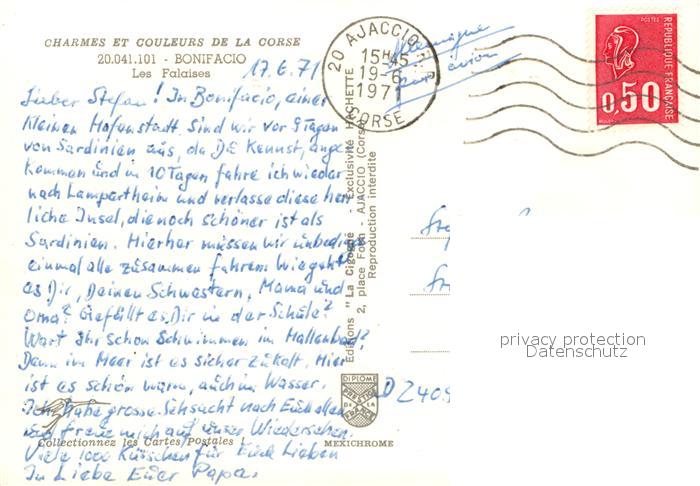 CHARMES ET COULEURS DE LA CORSE
20.041.101 - BONIFACIO
Les Falaises
17.6.71
Lieber Stefan! In Bonifacio, einer
kleinen Hafenstadt, sind wir vor 9 Tagen
von Sardinien aus, da Du kennst, ange
kommen und in 10 Tagen fahre ich wieder
nach Lampertheim und verlasse diese herr
liche Insel, die noch schöner ist als
Sardinien. Hierher müssen wir unbedingt
einmal alle zusammen fahren. Wie geht
es Dir, Deinen Schwestern, Mama und
Oma? Gefällt es Dir in der Schule?
Wart Ihr schon Schwimmen im Hallenbad?
Denn im Meer ist es sicher zu kalt. Hier
ist es schön warm, auch im Wasser.
Ich habe grosse Sehnsucht nach Euch allen
und freue mich auf unser Wiedersehen.
Viele 1000 Küsschen für Euch Lieben
In Liebe Euer Papa.
Collectionnez les Cartes Postales !
MEXICHROME
Editions "La Cigogne" - Exclusivité HACHETTE
2, place Foch - AJACCIO (Corse)
Reproduction interdite
DIPLOME
PRESTIGE
DE LA
FRANCE
20 AJACCIO
15H45
19-6
1971
CORSE
Allemagne
par avion
POSTES
REPUBLIQUE FRANÇAISE
0,50
D 2409
privacy protection
Datenschutz